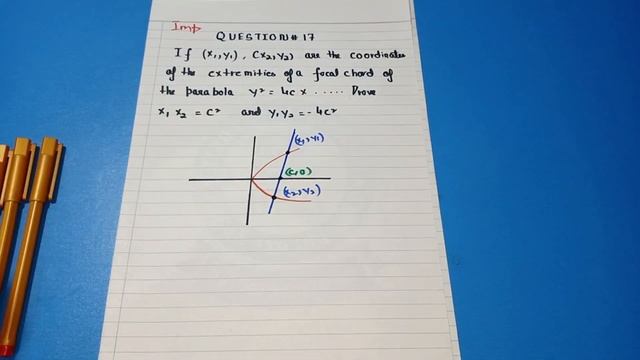 Imp
QUESTION# 17
If (x1,y1), (x2,y2) are the coordinates
of the extremities of a focal chord of
the parabola y² = 4cx ..... Prove
x1 x2 = c² and y1y2 = -4c²
(x1,y1)
(c,0)
(x2,y2)